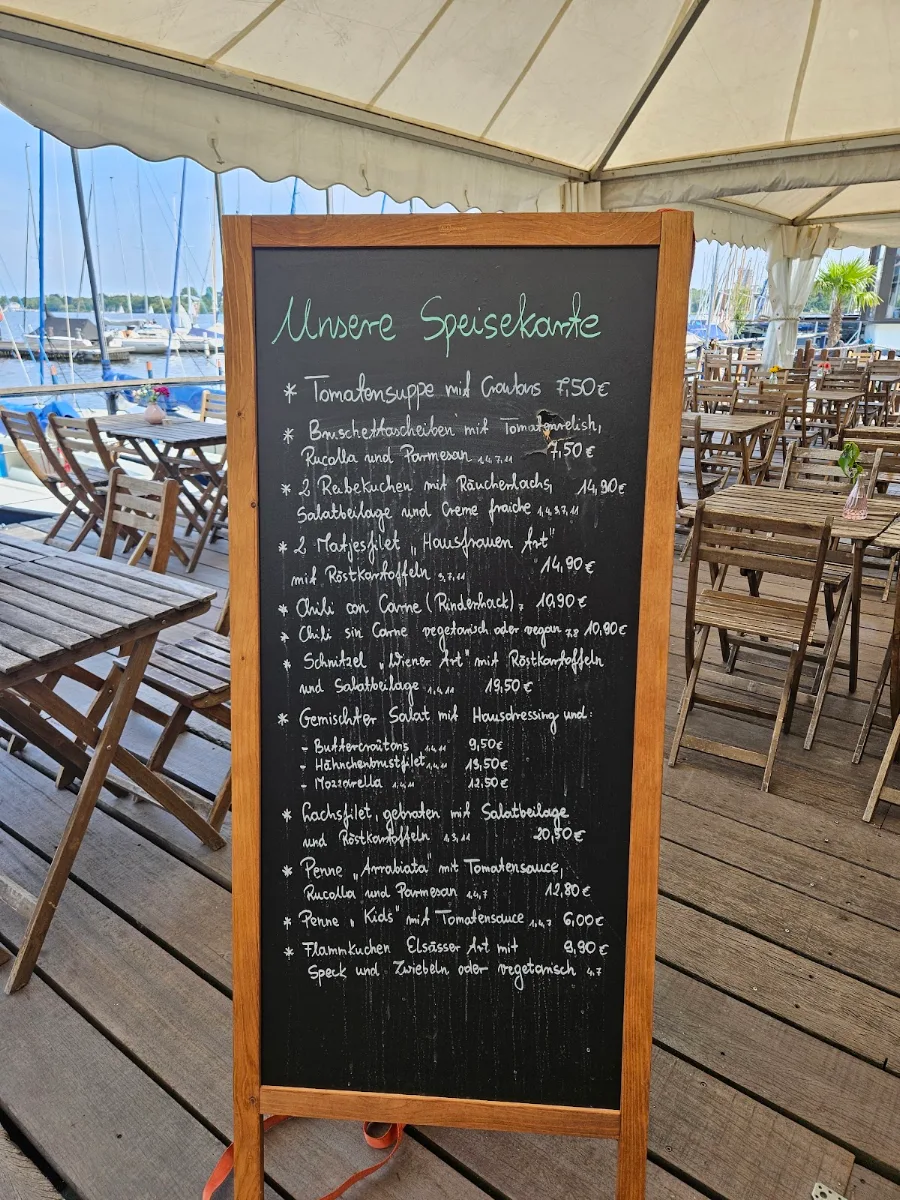 Unsere Speisekarte
* Tomatensuppe mit Croutons 7,50€
* Bruschettascheiben mit Tomatenrelish,
Rucolla und Parmesan 1,4,7,11 7,50€
* 2 Reibekuchen mit Räucherlachs, 14,90€
Salatbeilage und Creme fraiche
* 2 Matjesfilet „Hausfrauen Art"
mit Röstkartoffeln 14,90€
* Chili con Carne (Rinderhack) 10,90€
* Chili sin Carne vegetarisch oder vegan 10,90€
* Schnitzel „Wiener Art" mit Röstkartoffeln
und Salatbeilage 19,50€
* Gemischter Salat mit Hausdressing und:
- Buttercroûtons 9,50€
- Hähnchenbrustfilet
- Mozzarella 12,50€
* Lachsfilet, gebraten mit Salatbeilage
und Röstkartoffeln 20,50€
* Penne „Arrabiata" mit Tomatensauce,
Rucolla und Parmesan 1,4,7 12,80€
* Penne „Kids" mit Tomatensauce 1,4,7 6,00€
* Flammkuchen Elsässer Art mit 9,90€
Speck und Zwiebeln oder vegetarisch 4,7